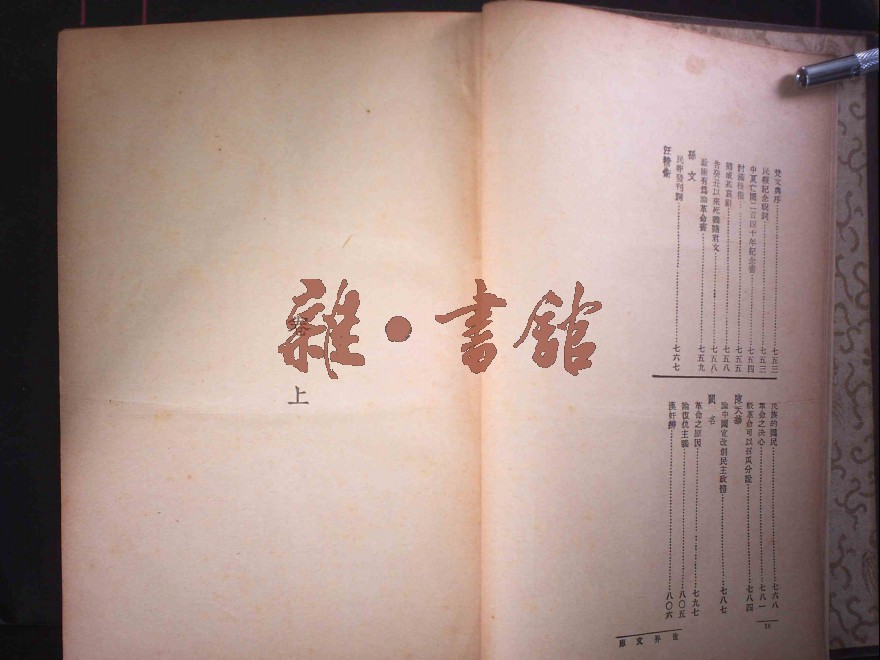 梵文典序……七五三
民報紀念祝詞……七五三
中夏亡國二百四十年紀念書……七五四
討滿洲檄……七五五
七五八
告癸丑以來死義諸君文……七五八
駁康有為論革命書……七五九
孫文
民報發刊詞……七六七
汪精衛
民族的國民……七六八
革命之決心……七八一
駁革命可以召瓜分說……七八四
陳天華
論中國宜改創民主政體……七八七
闕名
革命之原因……七九七
論復仇主義……八〇五
漢奸辨……八〇六
卷
上
雜·書館